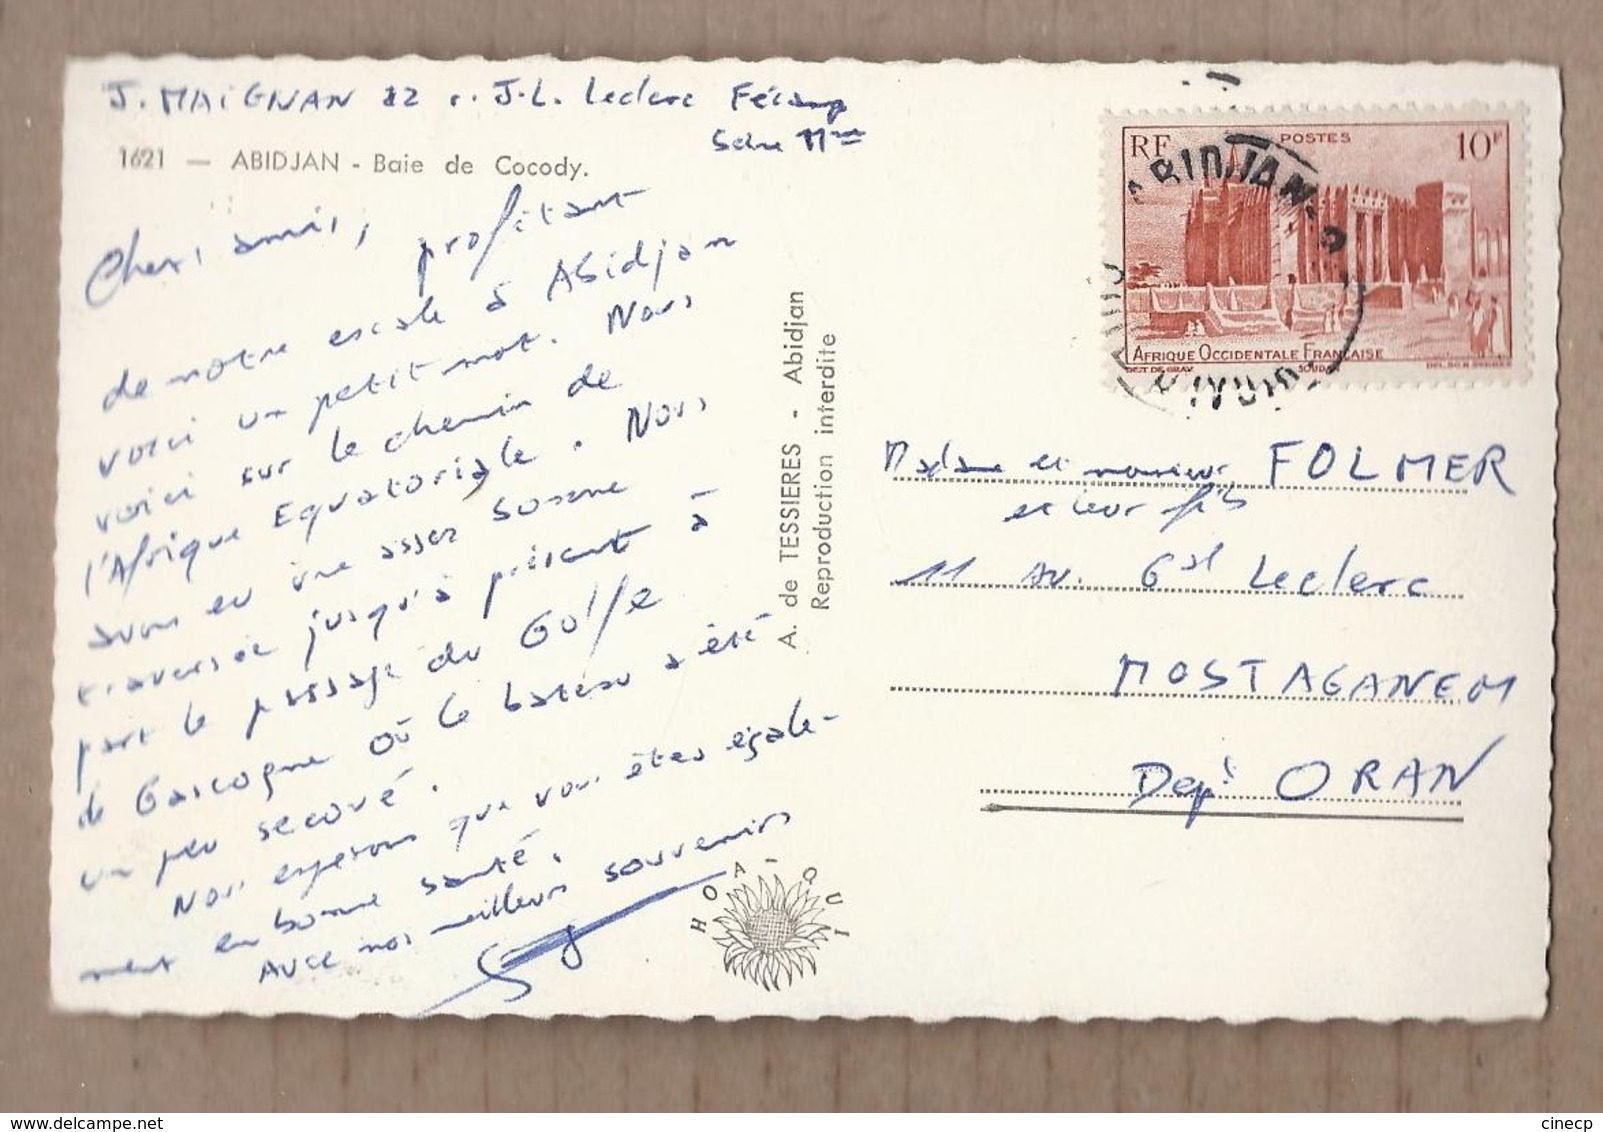 J. MAIGNAN 12 r. J.L. Leclerc Fécamp
Seine Mme
1621 — ABIDJAN - Baie de Cocody.
Chers amis, profitant
de notre escale à Abidjan
voici un petit mot. Nous
voici sur le chemin de
l'Afrique Equatoriale. Nous
avons eu une assez bonne
traversée jusqu'à présent à
part le passage du Golfe
de Gascogne où le bateau a été
un peu secoué.
Nous espérons que vous êtes égale-
ment en bonne santé.
Avec nos meilleurs souvenirs
A. de TESSIERES - Abidjan
Reproduction interdite
HOA-QUI
RF POSTES 10F
ABIDJAN
AFRIQUE OCCIDENTALE FRANÇAISE
SOUDAN
Madame et monsieur FOLMER
et leur fils
11 Av. Gal Leclerc
MOSTAGANEM
Dept ORAN
cinecp